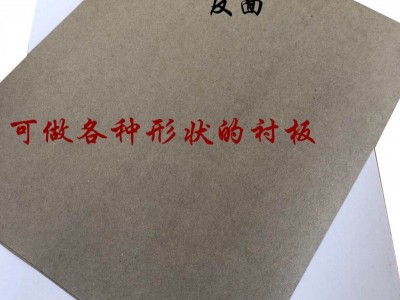 反面
可做各种形状的衬板